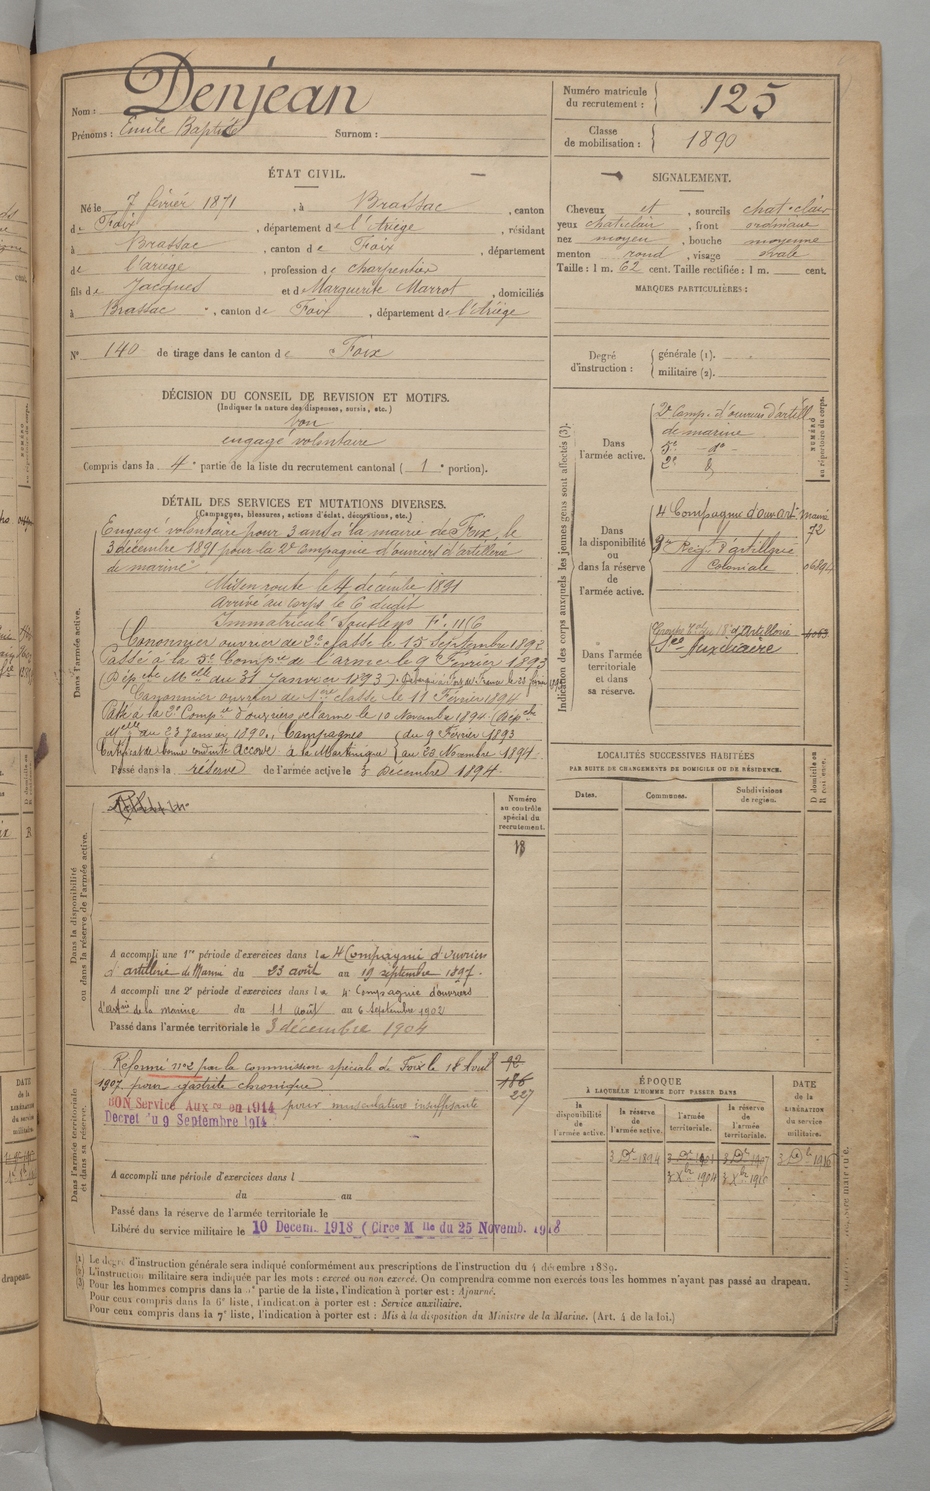 Nom : Denjean
Prénoms : Emile Baptiste Surnom :
Numéro matricule du recrutement : 125
Classe de mobilisation : 1890
ÉTAT CIVIL.
Né le 7 février 1871, à Brassac, canton
de Foix, département de l'Ariège, résidant
à Brassac, canton de Foix, département
de l'ariège, profession de charpentier
fils de Jacques et de Marguerite Marrot, domiciliés
à Brassac, canton de Foix, département de l'Ariège
N° 140 de tirage dans le canton de Foix
SIGNALEMENT.
Cheveux et, sourcils chat-clair
yeux chat clair, front ordinaire
nez moyen, bouche moyenne
menton rond, visage ovale
Taille : 1 m. 62 cent. Taille rectifiée : 1 m. cent.
MARQUES PARTICULIÈRES :
Degré d'instruction : générale (1).
militaire (2).
DÉCISION DU CONSEIL DE REVISION ET MOTIFS.
(Indiquer la nature des dispenses, sursis, etc.)
bon
engagé volontaire
Compris dans la 4e partie de la liste du recrutement cantonal ( 1e portion).
DÉTAIL DES SERVICES ET MUTATIONS DIVERSES.
(Campagnes, blessures, actions d'éclat, décorations, etc.)
Dans l'armée active.
Engagé volontaire pour 3 ans à la mairie de Foix, le
3 décembre 1891 pour la 2e Compagnie d'ouvriers d'artillerie
de marine
Mis en route le 4 décembre 1891
Arrivé au corps le 6 dudit
Immatriculé sous le no 1116
Canonnier ouvrier de 2e classe le 15 Septembre 1892
Passé à la 5e Compie de l'arme le 9 Février 1893
(Dép. che Melle du 31 Janvier 1893).
Canonnier ouvrier de 1ère classe le 11 Février 1894
Passé à la 2e Compie d'ouvriers de l'arme le 10 Novembre 1894 (Dépche
Melle du 23 Janvier 1890., Campagnes du 9 Février 1893
Certificat de bonne conduite Accordé à la Martinique au 23 Novembre 1894.
Passé dans la réserve de l'armée active le 3 Décembre 1894.
Indication des corps auxquels les jeunes gens sont affectés (3).
NUMÉRO au répertoire du corps.
Dans l'armée active.
2e Comp. d'ouvriers d'artill
de marine
5e - do -
2e do
Dans la disponibilité ou dans la réserve de l'armée active.
4 Compagnie d'ouv arti marine
72
Regt d'artillerie
Coloniale
Dans l'armée territoriale et dans sa réserve.
d'Artillerie
Sce Auxiliaire
Dans la disponibilité ou dans la réserve de l'armée active.
Numéro au contrôle spécial du recrutement.
18
A accompli une 1re période d'exercices dans la 4 Compagnie d'ouvriers
d'artillerie de Marine du 23 août au 19 septembre 1897.
A accompli une 2e période d'exercices dans la 4e Compagnie d'ouvriers
d'artrie de la marine du 11 août au 6 septembre 1902
Passé dans l'armée territoriale le 3 décembre 1904
LOCALITÉS SUCCESSIVES HABITÉES
PAR SUITE DE CHANGEMENTS DE DOMICILE OU DE RÉSIDENCE.
Dates. Communes. Subdivisions de région. D domicile ou R résidence.
Dans l'armée territoriale et dans sa réserve.
Réformé no 2 par la commission spéciale de Foix le 18 Avril
1907 pour gastrite chronique
92
186
227
BON Service Auxre en 1914 pour musculature insuffisante
Decret du 9 Septembre 1914
A accompli une période d'exercices dans l
du au
Passé dans la réserve de l'armée territoriale le
Libéré du service militaire le 10 Decem. 1918 (Circe Mlle du 25 Novemb. 1918
ÉPOQUE
À LAQUELLE L'HOMME DOIT PASSER DANS
la disponibilité de l'armée active. la réserve de l'armée active. l'armée territoriale. la réserve de l'armée territoriale. DATE de la LIBÉRATION du service militaire.
3 Dre 1894 3 Dre 1901 3 Dre 1907 3 Dbre 1916
3 Xbre 1904 3 Xbre 1910
(1) Le degré d'instruction générale sera indiqué conformément aux prescriptions de l'instruction du 4 décembre 1889.
(2) L'instruction militaire sera indiquée par les mots : exercé ou non exercé. On comprendra comme non exercés tous les hommes n'ayant pas passé au drapeau.
(3) Pour les hommes compris dans la 5e partie de la liste, l'indication à porter est : Ajourné.
Pour ceux compris dans la 6e liste, l'indication à porter est : Service auxiliaire.
Pour ceux compris dans la 7e liste, l'indication à porter est : Mis à la disposition du Ministre de la Marine. (Art. 4 de la loi.)